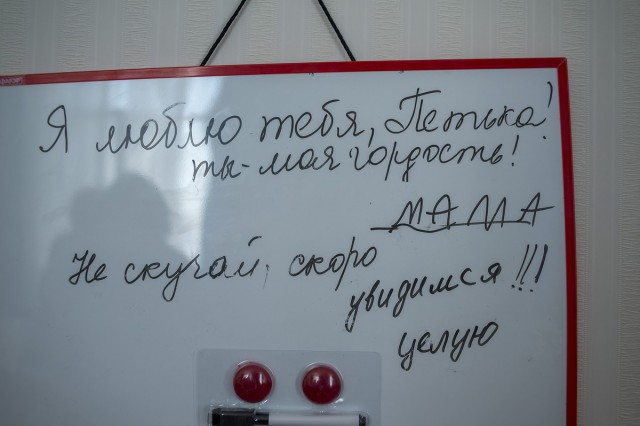 Я люблю тебя, Петька!
ты - моя гордость!
МАМА
Не скучай, скоро
увидимся!!!
целую